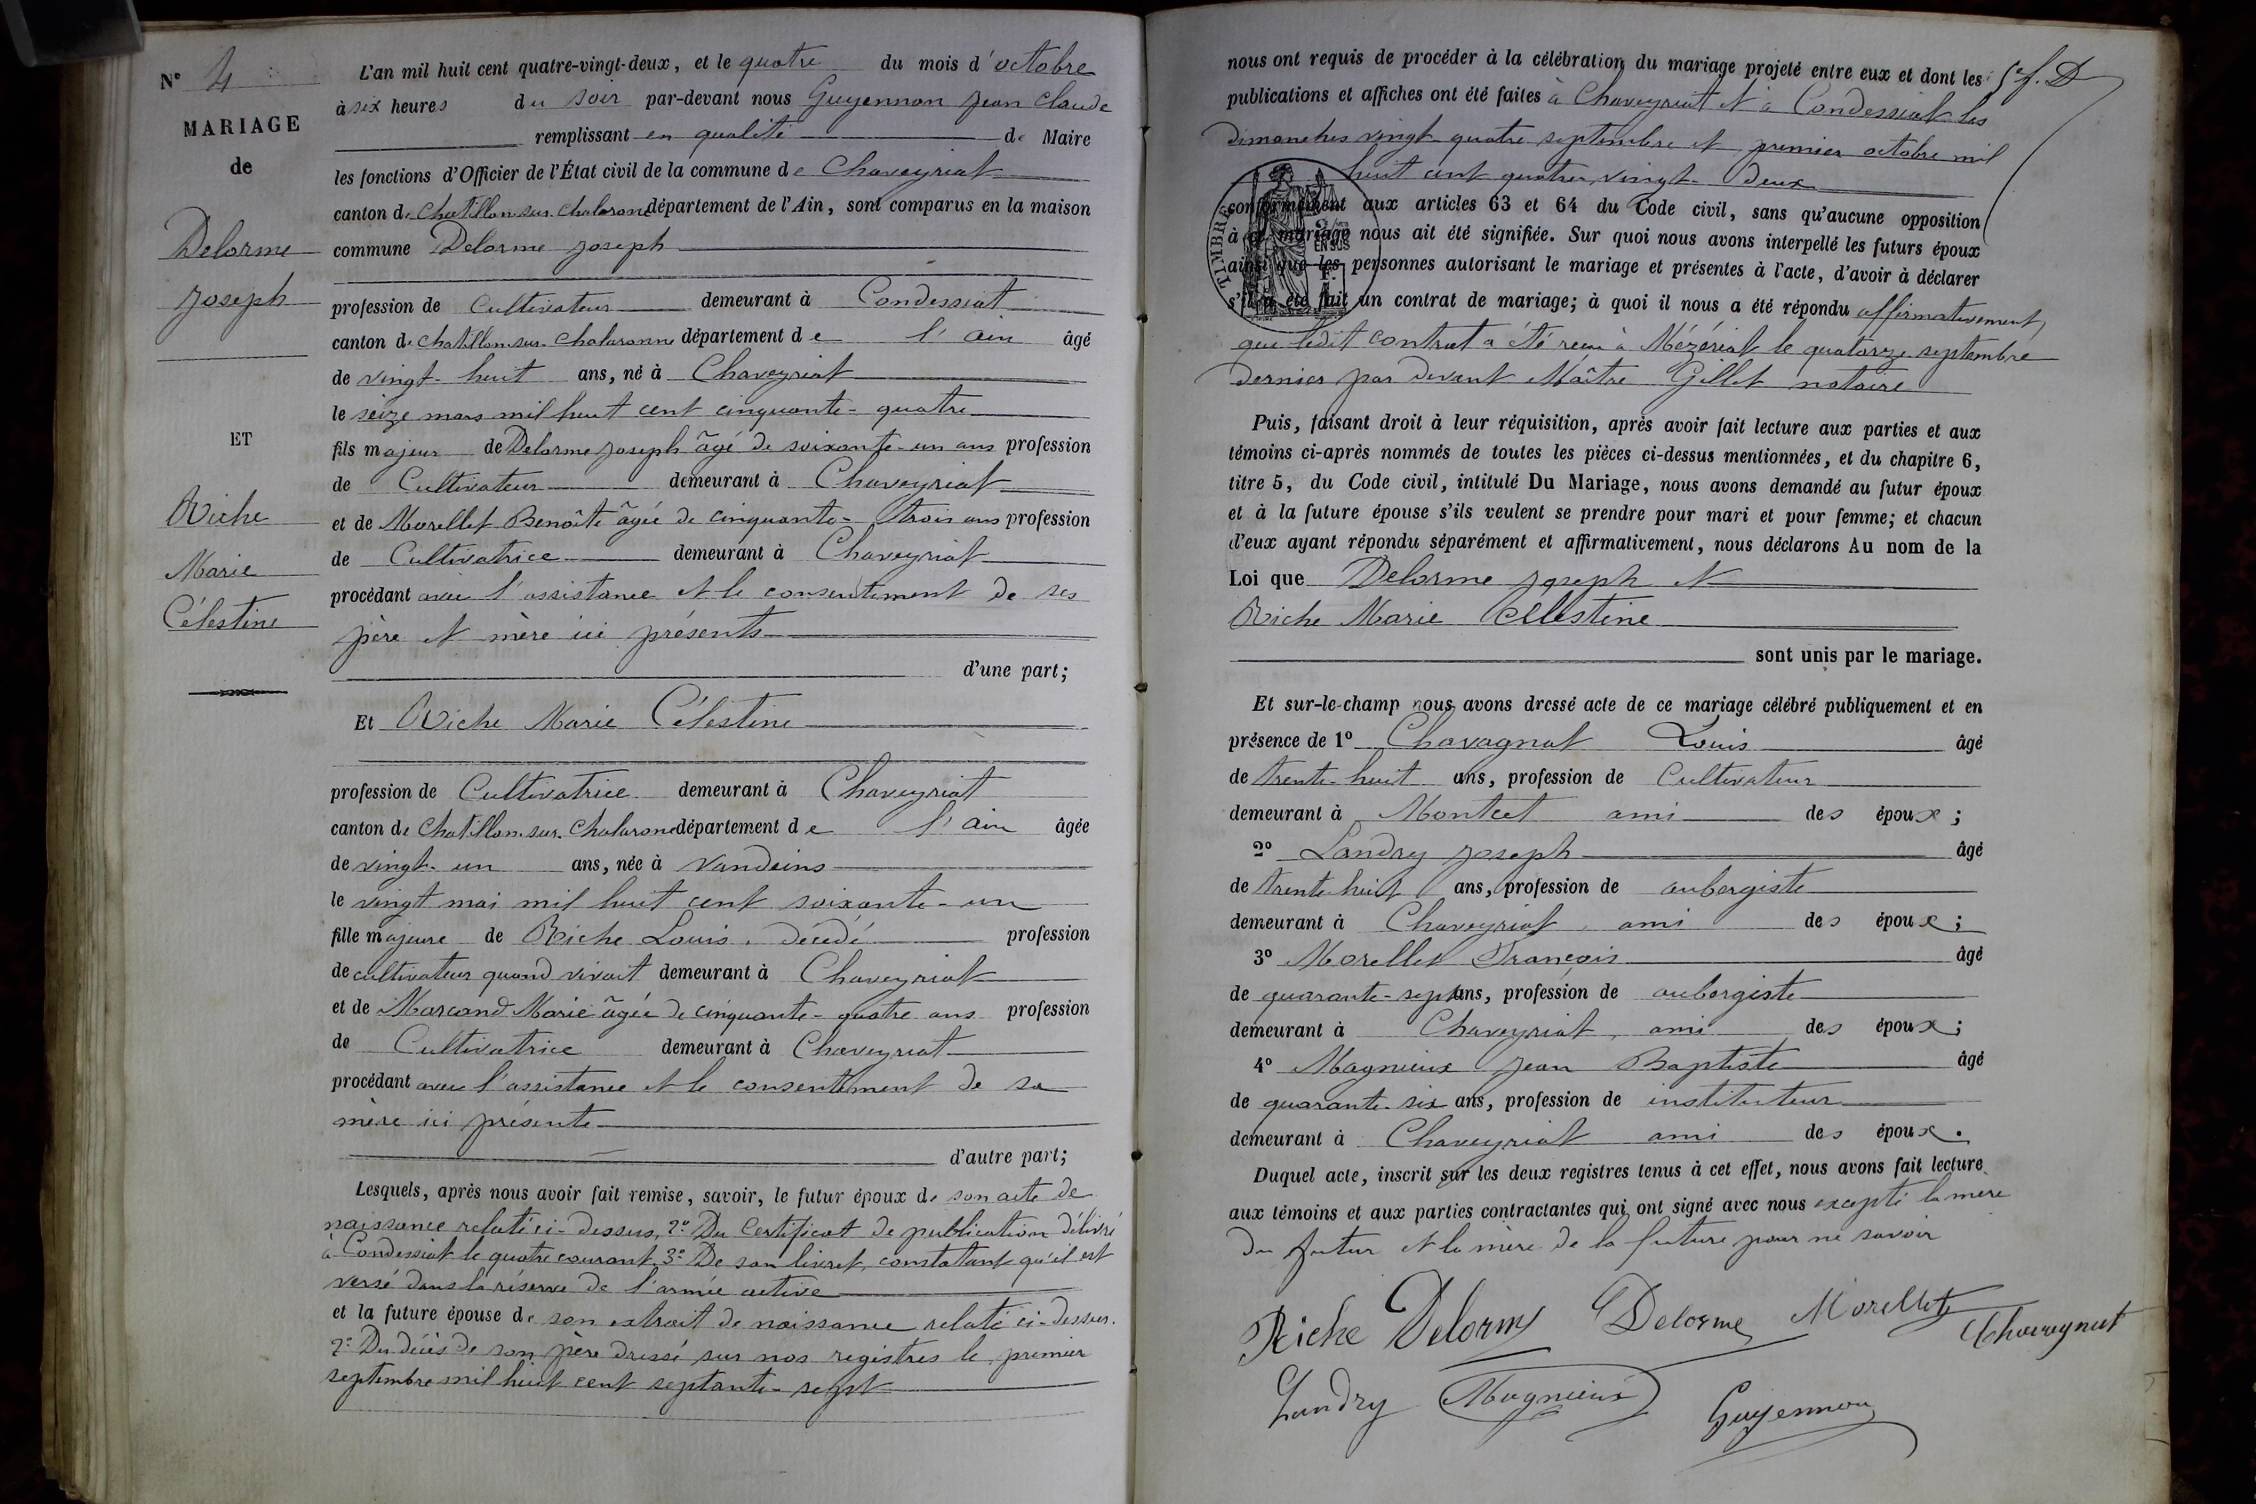 N° 4
MARIAGE
de
Delorme
Joseph
ET
Riche
Marie
Célestine
L'an mil huit cent quatre-vingt-deux, et le quatre du mois d'octobre
à six heures du soir par-devant nous Guyennon Jean Claude
remplissant en qualité de Maire
les fonctions d'Officier de l'État civil de la commune de Chaveyriat
canton de Chatillon-sur-Chalaronne département de l'Ain, sont comparus en la maison
commune Delorme Joseph
profession de Cultivateur demeurant à Condessiat
canton de Chatillon-sur-Chalaronne département de l'Ain âgé
de vingt-huit ans, né à Chaveyriat
le seize mars mil huit cent cinquante-quatre
fils majeur de Delorme Joseph âgé de soixante-un ans profession
de Cultivateur demeurant à Chaveyriat
et de Morellet Benoîte âgée de cinquante-trois ans profession
de Cultivatrice demeurant à Chaveyriat
procédant avec l'assistance et le consentement de ses
père et mère ici présents
d'une part;
Et Riche Marie Célestine
profession de Cultivatrice demeurant à Chaveyriat
canton de Chatillon-sur-Chalaronne département de l'Ain âgée
de vingt-un ans, née à Vandeins
le vingt mai mil huit cent soixante-un
fille majeure de Riche Louis, décédé profession
de cultivateur quand vivait demeurant à Chaveyriat
et de Marcand Marie âgée de cinquante-quatre ans profession
de Cultivatrice demeurant à Chaveyriat
procédant avec l'assistance et le consentement de sa
mère ici présente
d'autre part;
Lesquels, après nous avoir fait remise, savoir, le futur époux de son acte de
naissance relaté ci-dessus, 2° Du Certificat de publication délivré
à Condessiat le quatre courant. 3° De son livret, constatant qu'il est
versé dans la réserve de l'armée active
et la future épouse de son extrait de naissance relaté ci-dessus.
2° Du décès de son père dressé sur nos registres le premier
septembre mil huit cent septante-sept
nous ont requis de procéder à la célébration du mariage projeté entre eux et dont les
publications et affiches ont été faites à Chaveyriat et à Condessiat les
dimanches vingt-quatre septembre et premier octobre mil
huit cent quatre-vingt-deux
conformément aux articles 63 et 64 du Code civil, sans qu'aucune opposition
à ce mariage nous ait été signifiée. Sur quoi nous avons interpellé les futurs époux
ainsi que les personnes autorisant le mariage et présentes à l'acte, d'avoir à déclarer
s'il a été fait un contrat de mariage; à quoi il nous a été répondu affirmativement,
que ledit contrat a été reçu à Mézériat le quatorze septembre
dernier par devant Maître Gillet notaire
TIMBRE
EN SUS
Puis, faisant droit à leur réquisition, après avoir fait lecture aux parties et aux
témoins ci-après nommés de toutes les pièces ci-dessus mentionnées, et du chapitre 6,
titre 5, du Code civil, intitulé Du Mariage, nous avons demandé au futur époux
et à la future épouse s'ils veulent se prendre pour mari et pour femme; et chacun
d'eux ayant répondu séparément et affirmativement, nous déclarons Au nom de la
Loi que Delorme Joseph et
Riche Marie Célestine
sont unis par le mariage.
Et sur-le-champ nous avons dressé acte de ce mariage célébré publiquement et en
présence de 1° Chavagnat Louis âgé
de trente-huit ans, profession de Cultivateur
demeurant à Montcet ami des époux;
2° Landry Joseph âgé
de trente-huit ans, profession de aubergiste
demeurant à Chaveyriat, ami des époux;
3° Morellet François âgé
de quarante-sept ans, profession de aubergiste
demeurant à Chaveyriat, ami des époux;
4° Magnieux Jean Baptiste âgé
de quarante-six ans, profession de instituteur
demeurant à Chaveyriat ami des époux.
Duquel acte, inscrit sur les deux registres tenus à cet effet, nous avons fait lecture
aux témoins et aux parties contractantes qui ont signé avec nous excepté la mère
du futur et la mère de la future pour ne savoir
Riche Delorme J Delorme Morellet Chavagnat
Landry Magnieux Guyennon